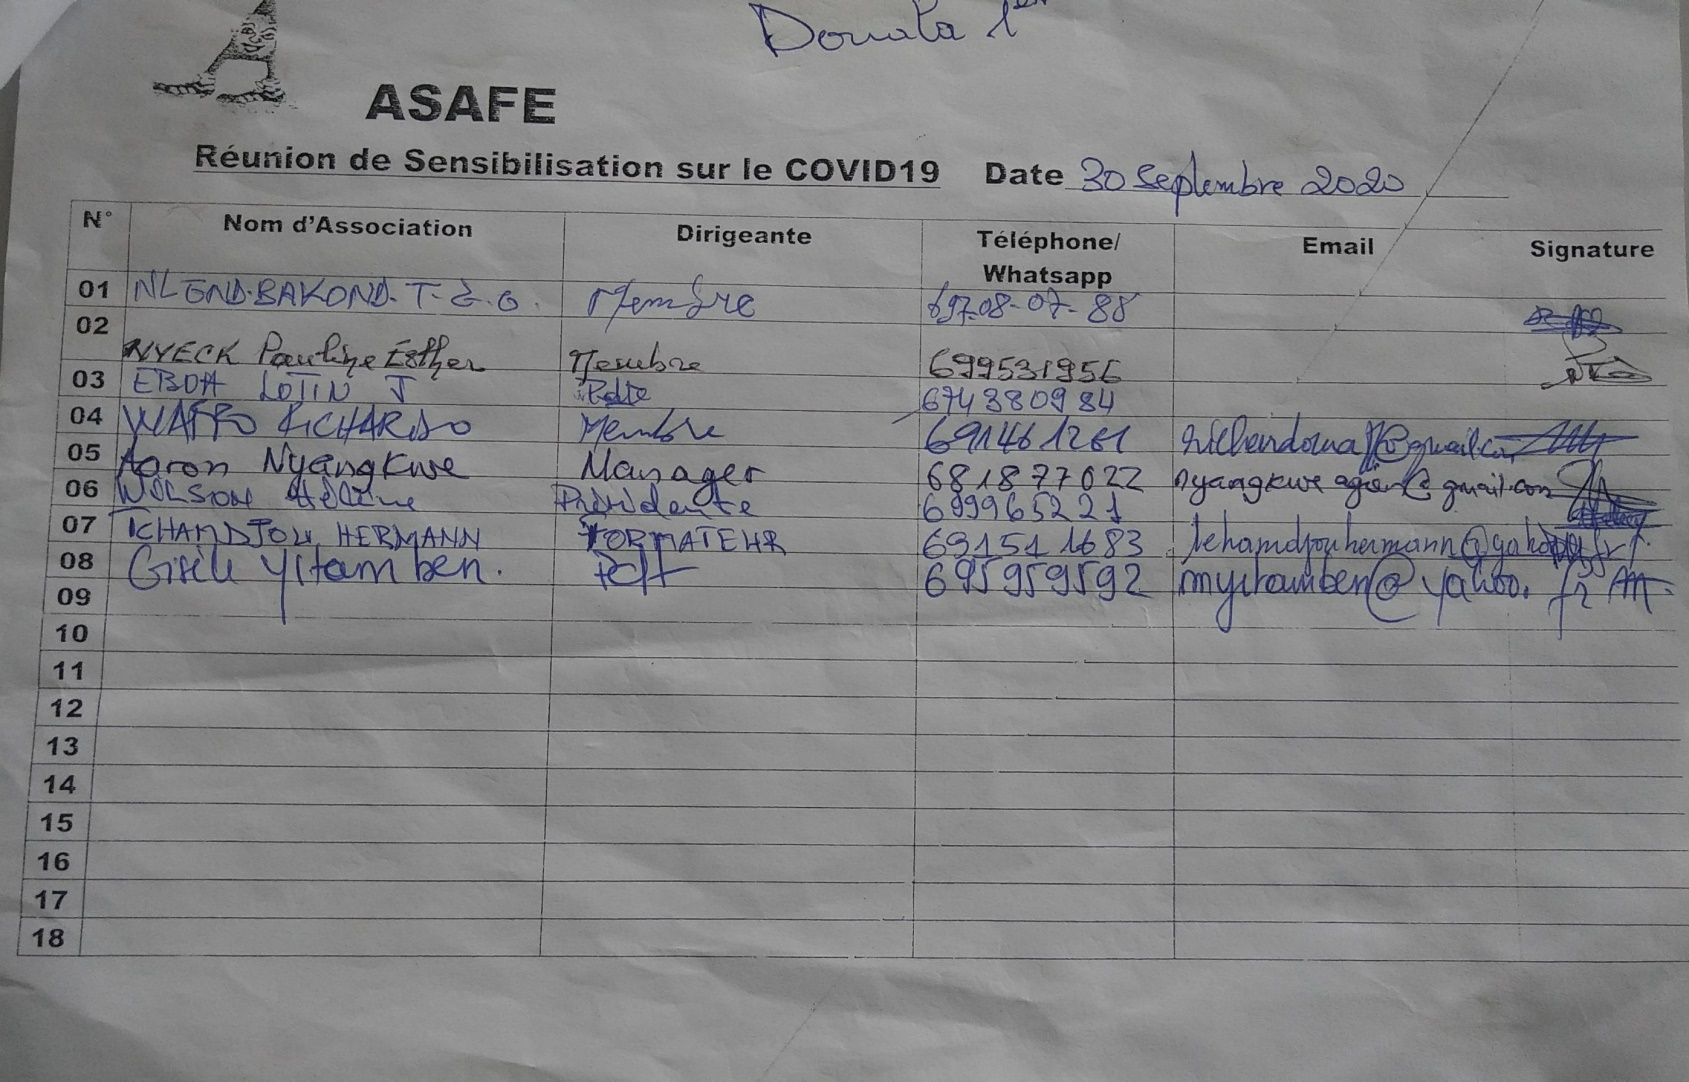 Douala 1er
ASAFE
Réunion de Sensibilisation sur le COVID19 Date 30 Septembre 2020
N° Nom d'Association Dirigeante Téléphone/ Whatsapp Email Signature
01 NLEND.BAKOND. T. E. G. Membre 697.08-07-88
02 NYECK Pauline Esther Membre 699531956
03 EBOA LOTIN J 674380984
04 WAFFO RICHARD Membre 691461261
05 Aaron Nyangkwe Manager 681877022
06 WILSON Hélène Présidente 699965221
07 TCHANDJOU HERMANN FORMATEUR 691511683 tchamdjouhermann@yahoo.fr
08 Gisèle Yitamben. 695959592 myitamben@yahoo.fr
09
10
11
12
13
14
15
16
17
18